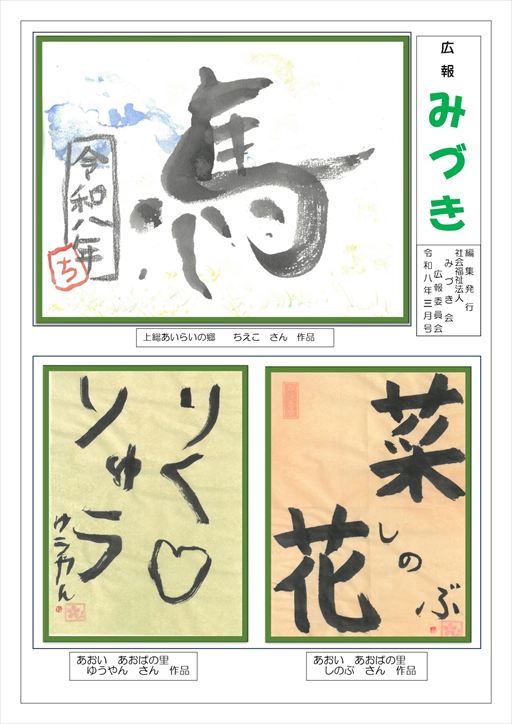 広報
みづき
編集発行
社会福祉法人
みづき会
広報委員会
令和八年三月号
馬
令和八年
ち
上総あいらいの郷　ちえこ　さん　作品
りく♡
りゅう
ゆうやん
あおい　あおばの里
ゆうやん　さん　作品
菜
花
しのぶ
あおい　あおばの里
しのぶ　さん　作品